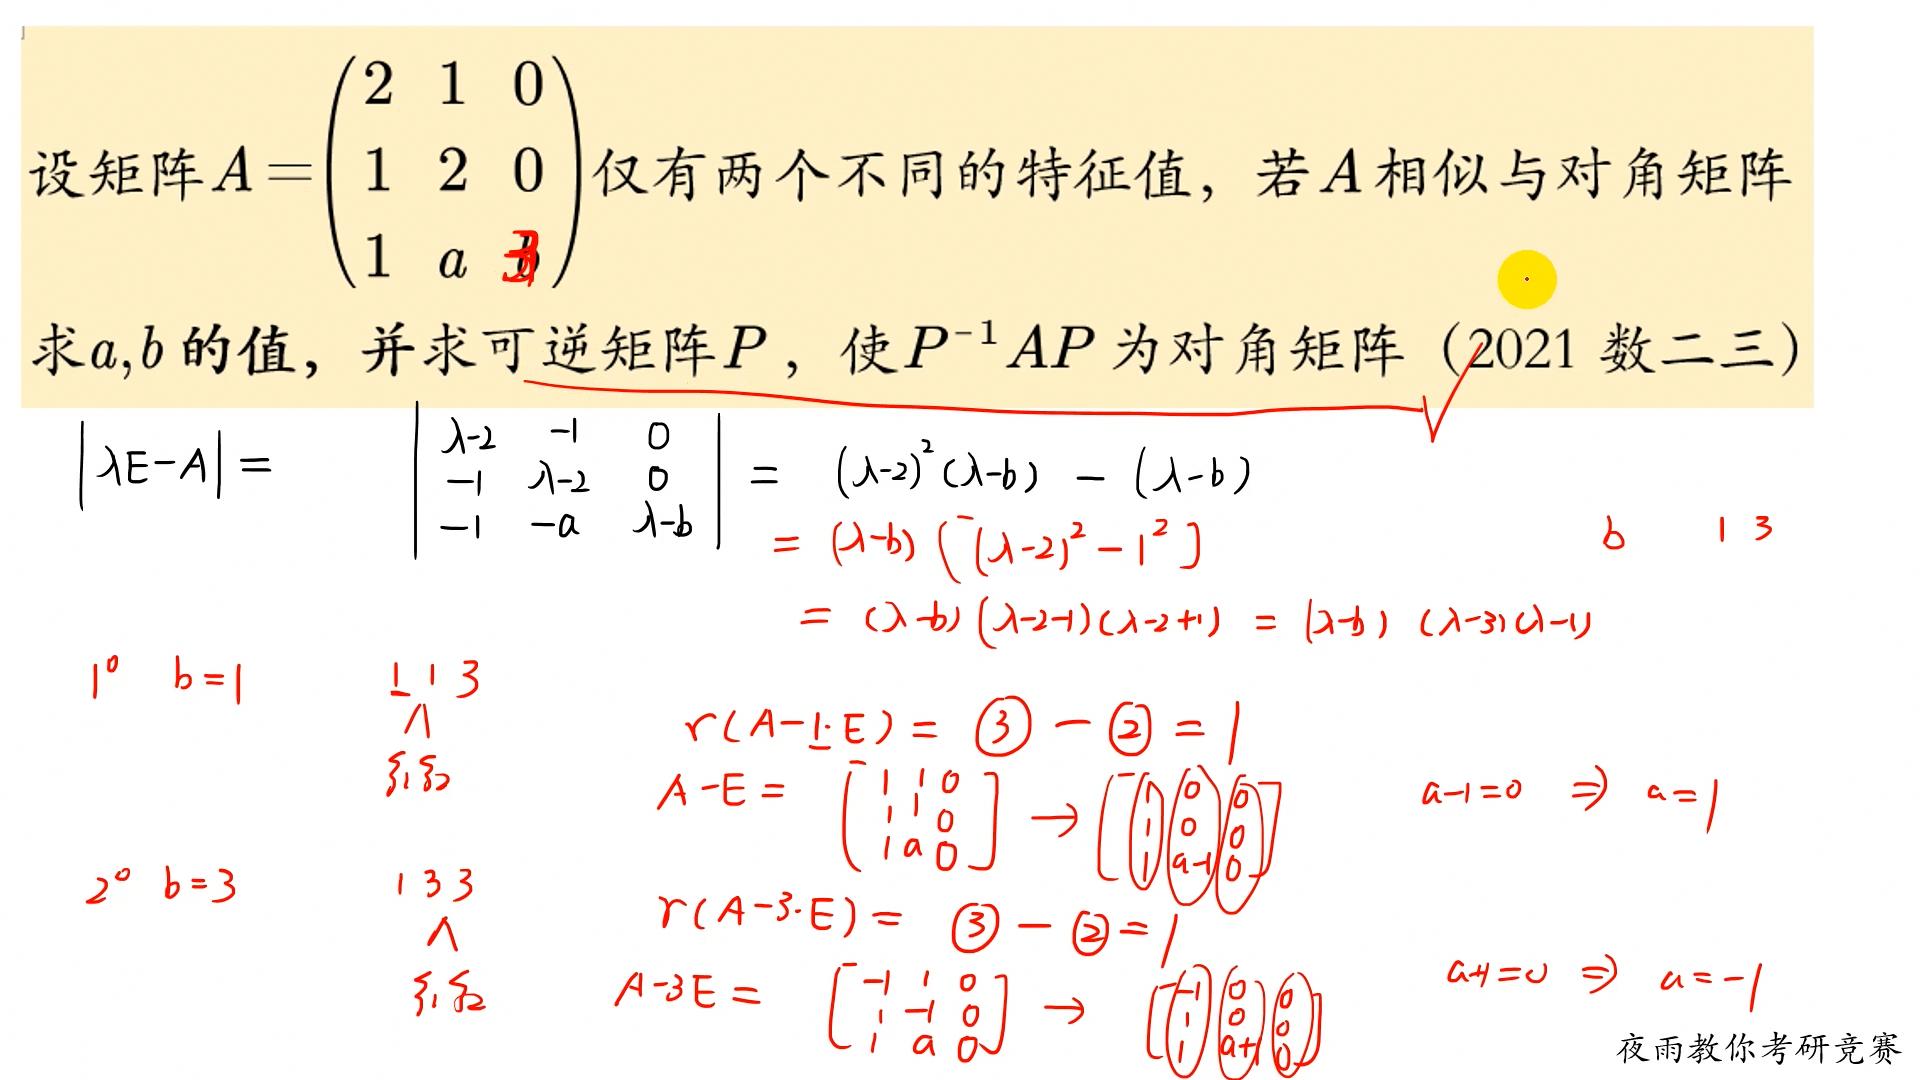 设矩阵A=(2 1 0
1 2 0
1 a 3)仅有两个不同的特征值，若A相似与对角矩阵
求a,b的值，并求可逆矩阵P，使P⁻¹AP为对角矩阵（2021 数二三）
|λE-A| = |λ-2 -1 0
-1 λ-2 0
-1 -a λ-b| = (λ-2)²(λ-b) - (λ-b)
= (λ-b)[(λ-2)²-1²]
b 1 3
= (λ-b)(λ-2-1)(λ-2+1) = (λ-b)(λ-3)(λ-1)
1° b=1 1 1 3
ξ₁ξ₂
r(A-1·E) = ③ - ② = 1
A-E = [1 1 0
1 1 0
1 a 0] → [1 0 0
1 0 0
1 a-1 0] a-1=0 ⇒ a=1
2° b=3 1 3 3
ξ₁ξ₂
r(A-3·E) = ③ - ② = 1
A-3E = [-1 1 0
1 -1 0
1 a 0] → [-1 0 0
1 0 0
1 a+1 0] a+1=0 ⇒ a=-1
夜雨教你考研竞赛